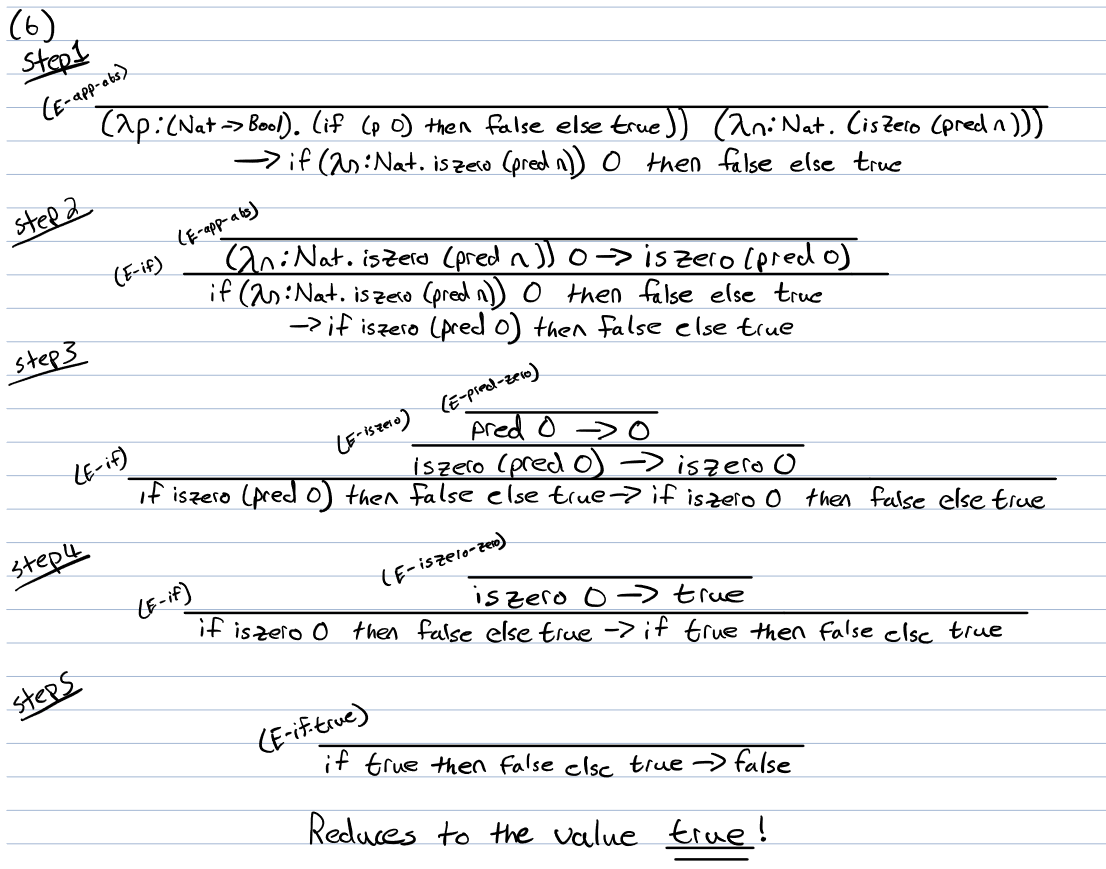 (6)
Step1
(E-app-abs)
(λp:(Nat→Bool). (if (p 0) then false else true)) (λn:Nat. (iszero (pred n)))
→ if (λn:Nat. iszero (pred n)) 0 then false else true
step2
(E-app-abs)
(λn:Nat. iszero (pred n)) 0 → iszero (pred 0)
(E-if)
if (λn:Nat. iszero (pred n)) 0 then false else true
→ if iszero (pred 0) then false else true
step3
(E-pred-zero)
pred 0 → 0
(E-iszero)
iszero (pred 0) → iszero 0
(E-if)
if iszero (pred 0) then false else true → if iszero 0 then false else true
step4
(E-iszero-zero)
iszero 0 → true
(E-if)
if iszero 0 then false else true → if true then false else true
step5
(E-if-true)
if true then false else true → false
Reduces to the value true!